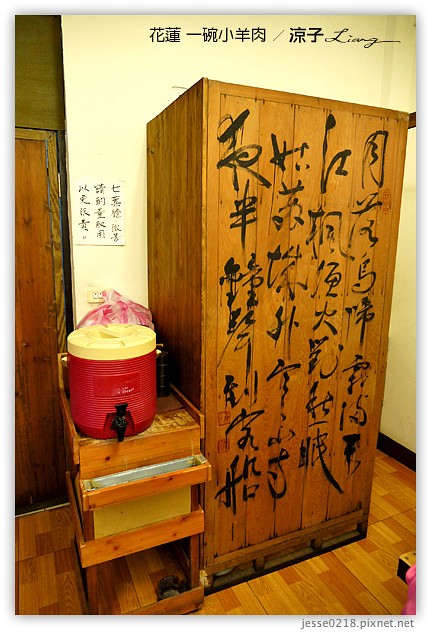 花蓮 一碗小羊肉 / 涼子 Liang
月落烏啼霜滿天
江楓漁火對愁眠
姑蘇城外寒山寺
夜半鐘聲到客船
請酌量取用
以免浪費。
jesse0218.pixnet.net